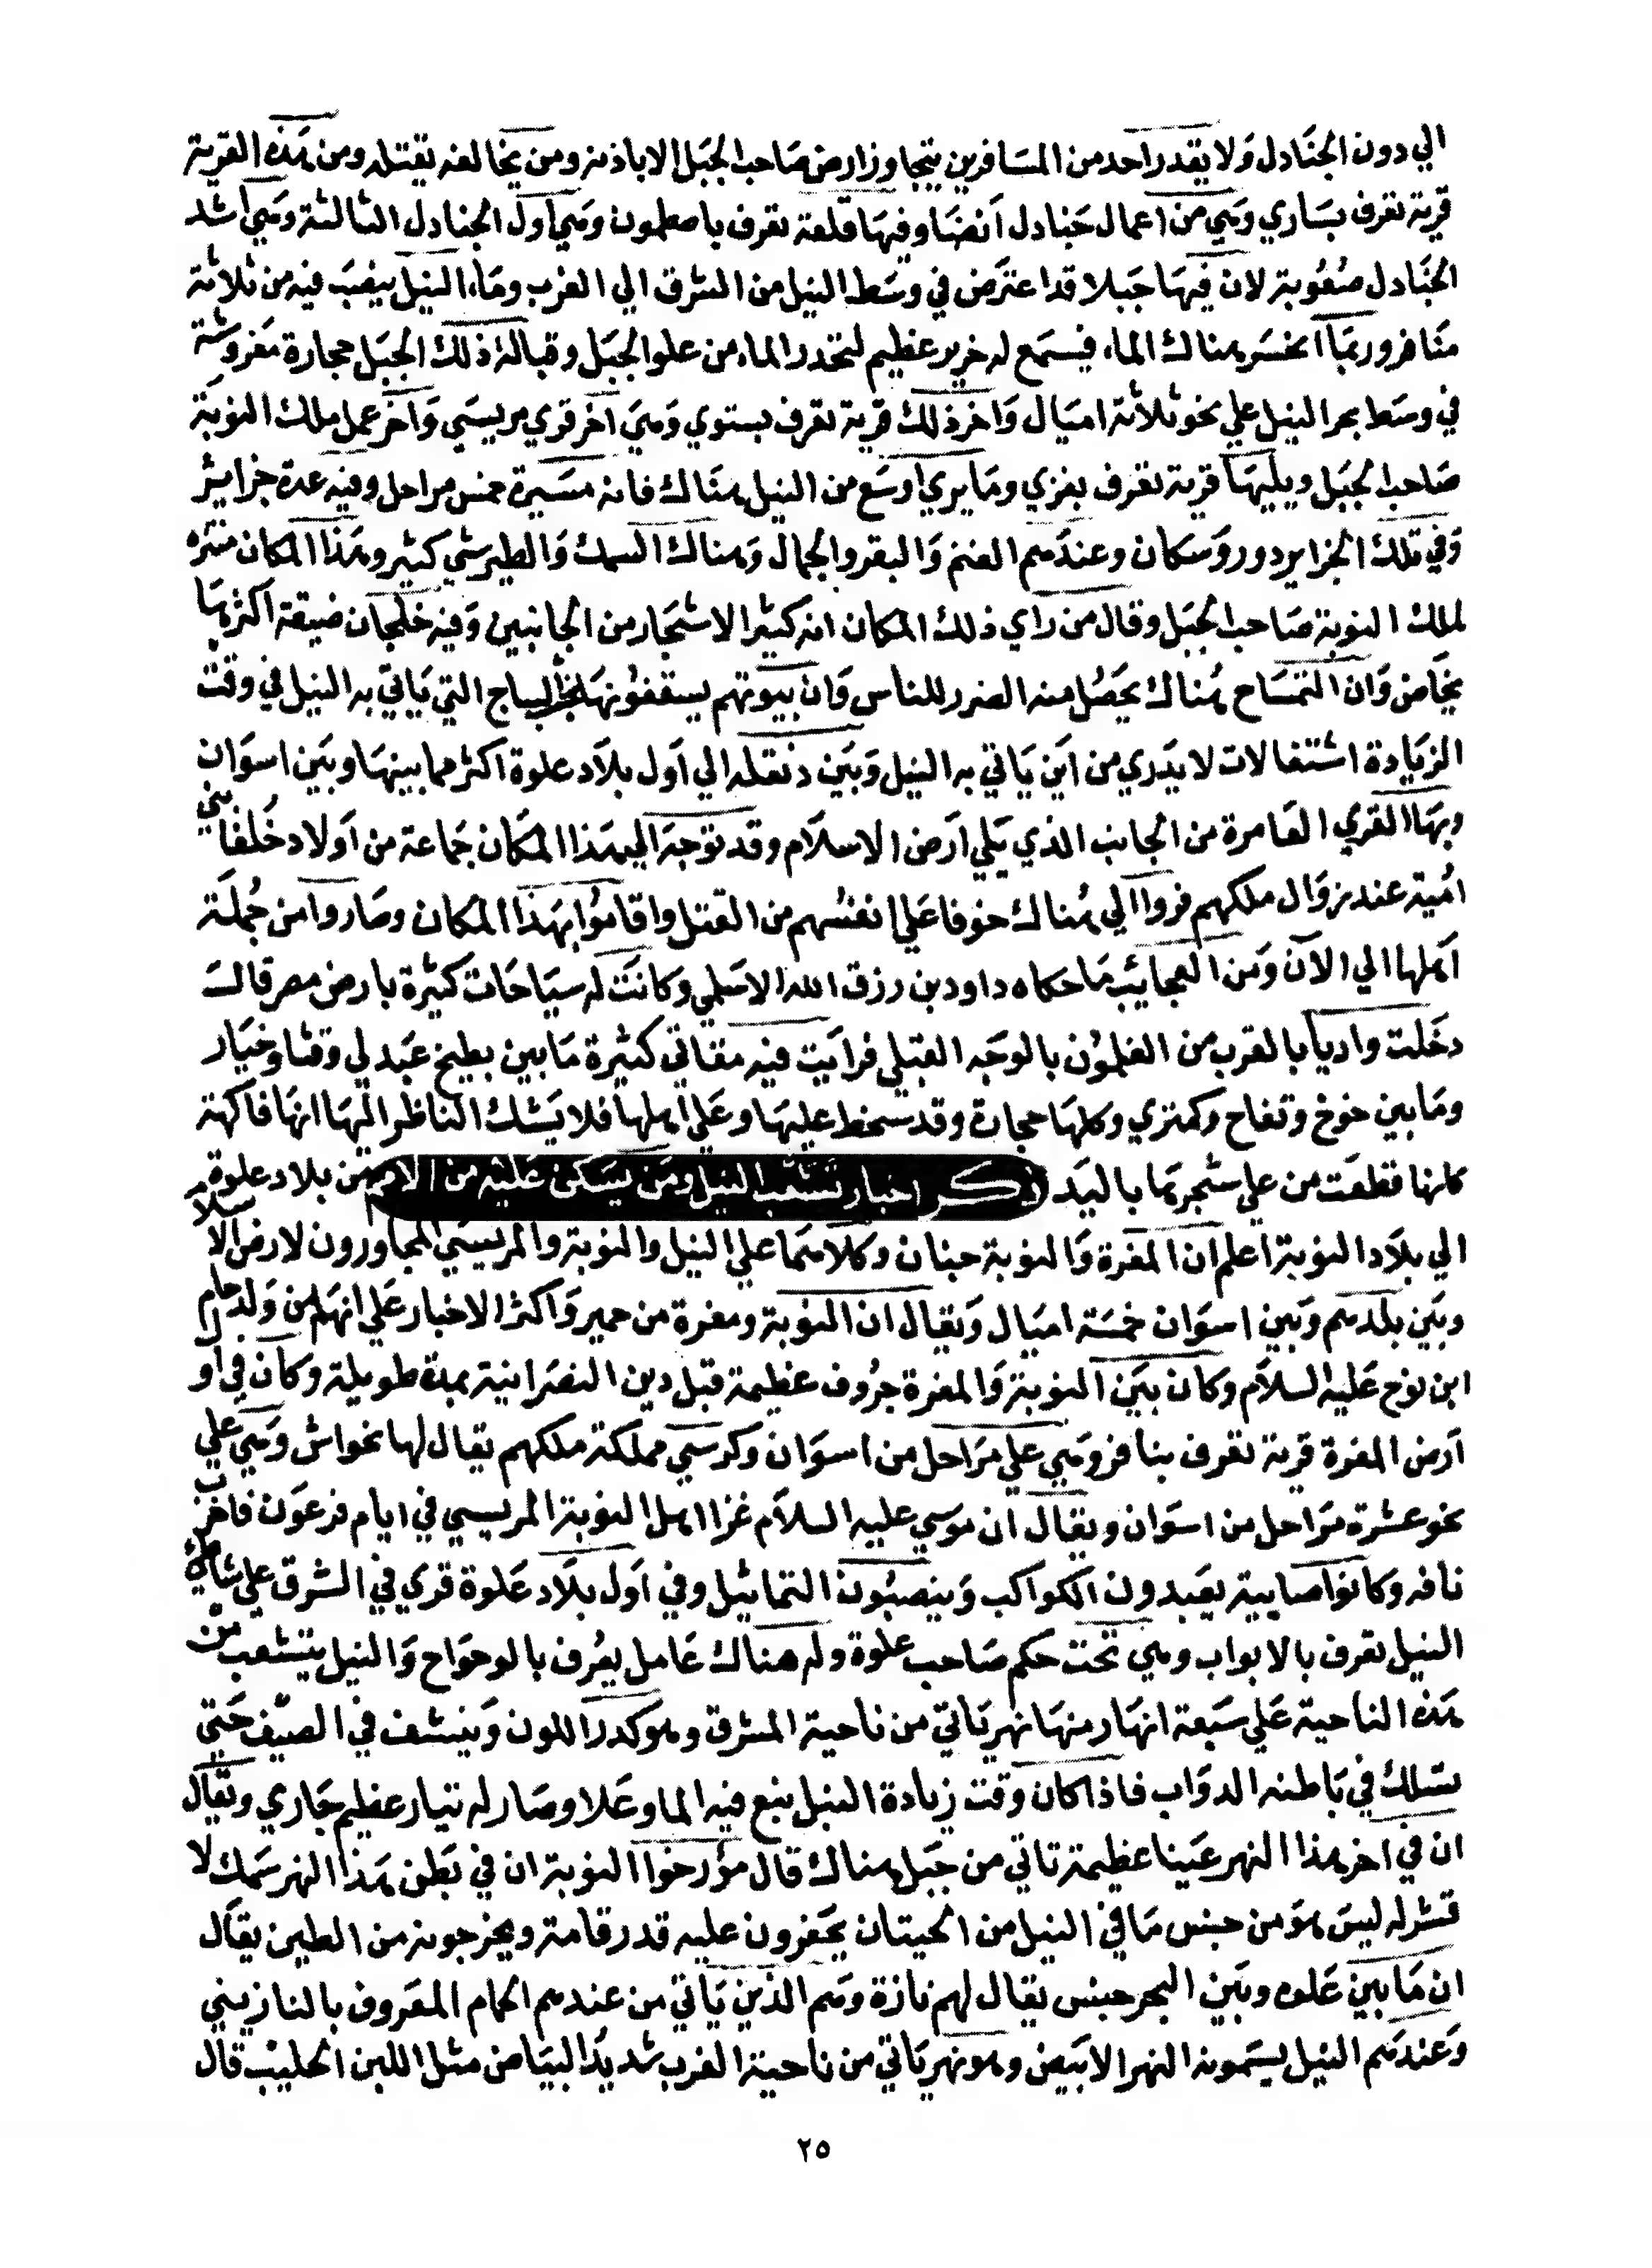 الي دون الجنَادل وَلا يقدر احد من المسَافرين يتجاوز ارض صَاحب الجبَل الا باذنه ومن يخالفه يقتله ومن هَذه القرية
قرية تعرف بسَاري وهَي من اعمال جَنادل اَنضَا وفيهَا قلعة تعرف باصطمون وهَي اول الجنادل الثالثة وهَي اشد
الجنَادل صُعُوبة لان فيهَا جَبلا قد اعترَض في وسَط النيل من الشرق الي الغرب ومَاء النيل ينصَب فيه من ثلاثة
منَافز وربمَا انحسَر هناك الماء فيسَمع له خرير عظيم لتحدر الماء من علو الجبَل وقبالة ذلك الجبَل حجارة مَفروشة
في وسَط بحر النيل علي نحو ثلاثة اميَال وَاخر ذلك قرية تعرف بستوي وَهيَ اخر قري مريسَي وَاخر عمل ملك النوبَة
صَاحب الجبَل ويليهَا قرية تعرف بفزي ومَا يري اوسَع من النيل هنَاك فانه مسَيرة خمس مراحل وفيه عدة جزاير
وَفي تلك الجزاير دور وَسكان وعندهَم الغنم وَالبقر والجمال وَهناك السمك وَالطير شي كثير وهَذا المكان منتزه
لملك النوبة صَاحب الجبَل وقال من راي ذلك المكان انه كثير الاشجَار من الجانبين وَفيه خلجان ضيقة اكثرهَا
يخَاض وَان التمسَاح هُناك يحصُل منه الضرر للناس وَان بيَوتهم يسقفوُنهَا بخشب الساج التي يَاتي به النيل في وقت
الزيَادة اشتغالات لا يدَري من اَين يَاتي به النيل وَبَين دنقله الي اَول بلاَد علوة اكثر مما بينهَا وبَين اسوَان
وبهَا القري العَامرة من الجانب الذي يَلي ارَض الاسلاَم وقد توجَه الي هَذا المكَان جَماعة من اَولاد خُلفا بني
امُية عند زوَال ملكهم فروا الي هُناك خوفا عَلي انفسُهم من القتل واقاموُا بهَذا المكان وصَاروا من جُملَة
اَهلها الي الآن وَمن العجَايب مَا حكاه داود بن رزق الله الاسَلمي وكانَت له سيَاحَات كَثيرة بارض مصر قالَ
دخَلت واديا بالقرب من الفلموُن بالوجَه القبلي فرايَت فيه مقاتي كثيرة مَا بين بطيخ عَبدلي وقثا وخيَار
ومَا بين خوخ وتفاح وكمتري وكلهَا حجارة وقد سخط عليهَا وعَلي اهلها فلا يَشك الناظر اليهَا انهَا فاكهة
كانها قطعَت من علي شجرهَا باليَد ذكر اخبار تشعَب النيل ومَن يسَكن عَليه من الامم من بلاد علوة
الي بلاَد النوبة اعلم ان المقرة وَالنوبة جنسَان وكلاهمَا علي النيل والنوبة والمريسَي المجاورون لارض الاسلام
وبَين بلدهَم وَبين اسوَان خمسَة اميَال وَيقال ان النوبَة ومغرة من حمير وَاكثر الاخبار عَلي انهَم من وَلد حام
ابن نوح عَليه السلاَم وكان بيَن النوبة وَالمغرة حرُوب عَظيمة قبل دين النصَرانية بمدة طويلة وكان في اول
اَرض المغرة قرية تعرف بنافز وهَي علي مَراحل من اسوَان وكرسَي مملكة ملكهم يقال لها نخواش وهَي علي
نحو عشرة مَراحل من اسوَان ويقال ان موسَي عليه السلاَم غزا اهل النوبة المريسي في ايام فرعوَن فاخرب
نافه وكانوَا صابية يعَبدون الكواكب وَينصبُون التماثيل وفي اوَل بلاَد عَلوة قري في الشرق علي شاطئ
النيل تعرف بالابواب وهي تحت حكم صَاحب علوة وله هناك عَامل يعُرف بالوحوَاح وَالنيل يتشعب من
هَذه الناحية عَلي سَبعة انهَار منهَا نهر يَاتي من ناحية المشرق وهو كدر اللون وَينشف في الصَيف حَتي
يسَلك في بَاطنه الدوَاب فاذا كان وقت زيادة النيل ينبع فيه الما وعَلا وصَار له تيار عظيم جَاري ويقال
ان في اخر هذا النهر عَينا عظيمة تاتي من جَبل هناك قال مؤرخوا النوبة ان في بَطن هَذا النهر سَمك لا
قشر له ليسَ هوَ من جنس مَا في النيل من الحيتان يحَفرون عليه قدر قامة ويخرجونه من الطين يقاَل
ان مَا بين عَلوه وبَين البحر جنس يقال لهم نازة وهَم الذين يَاتي من عندهم الحمام المعَروف بالنازيني
وَعندهَم النيل يسَمونه النهر الابيَض وهو نهر يَاتي من ناحية الغرب شديَد البيَاض مثل اللبن الحليَب قال
٢٥